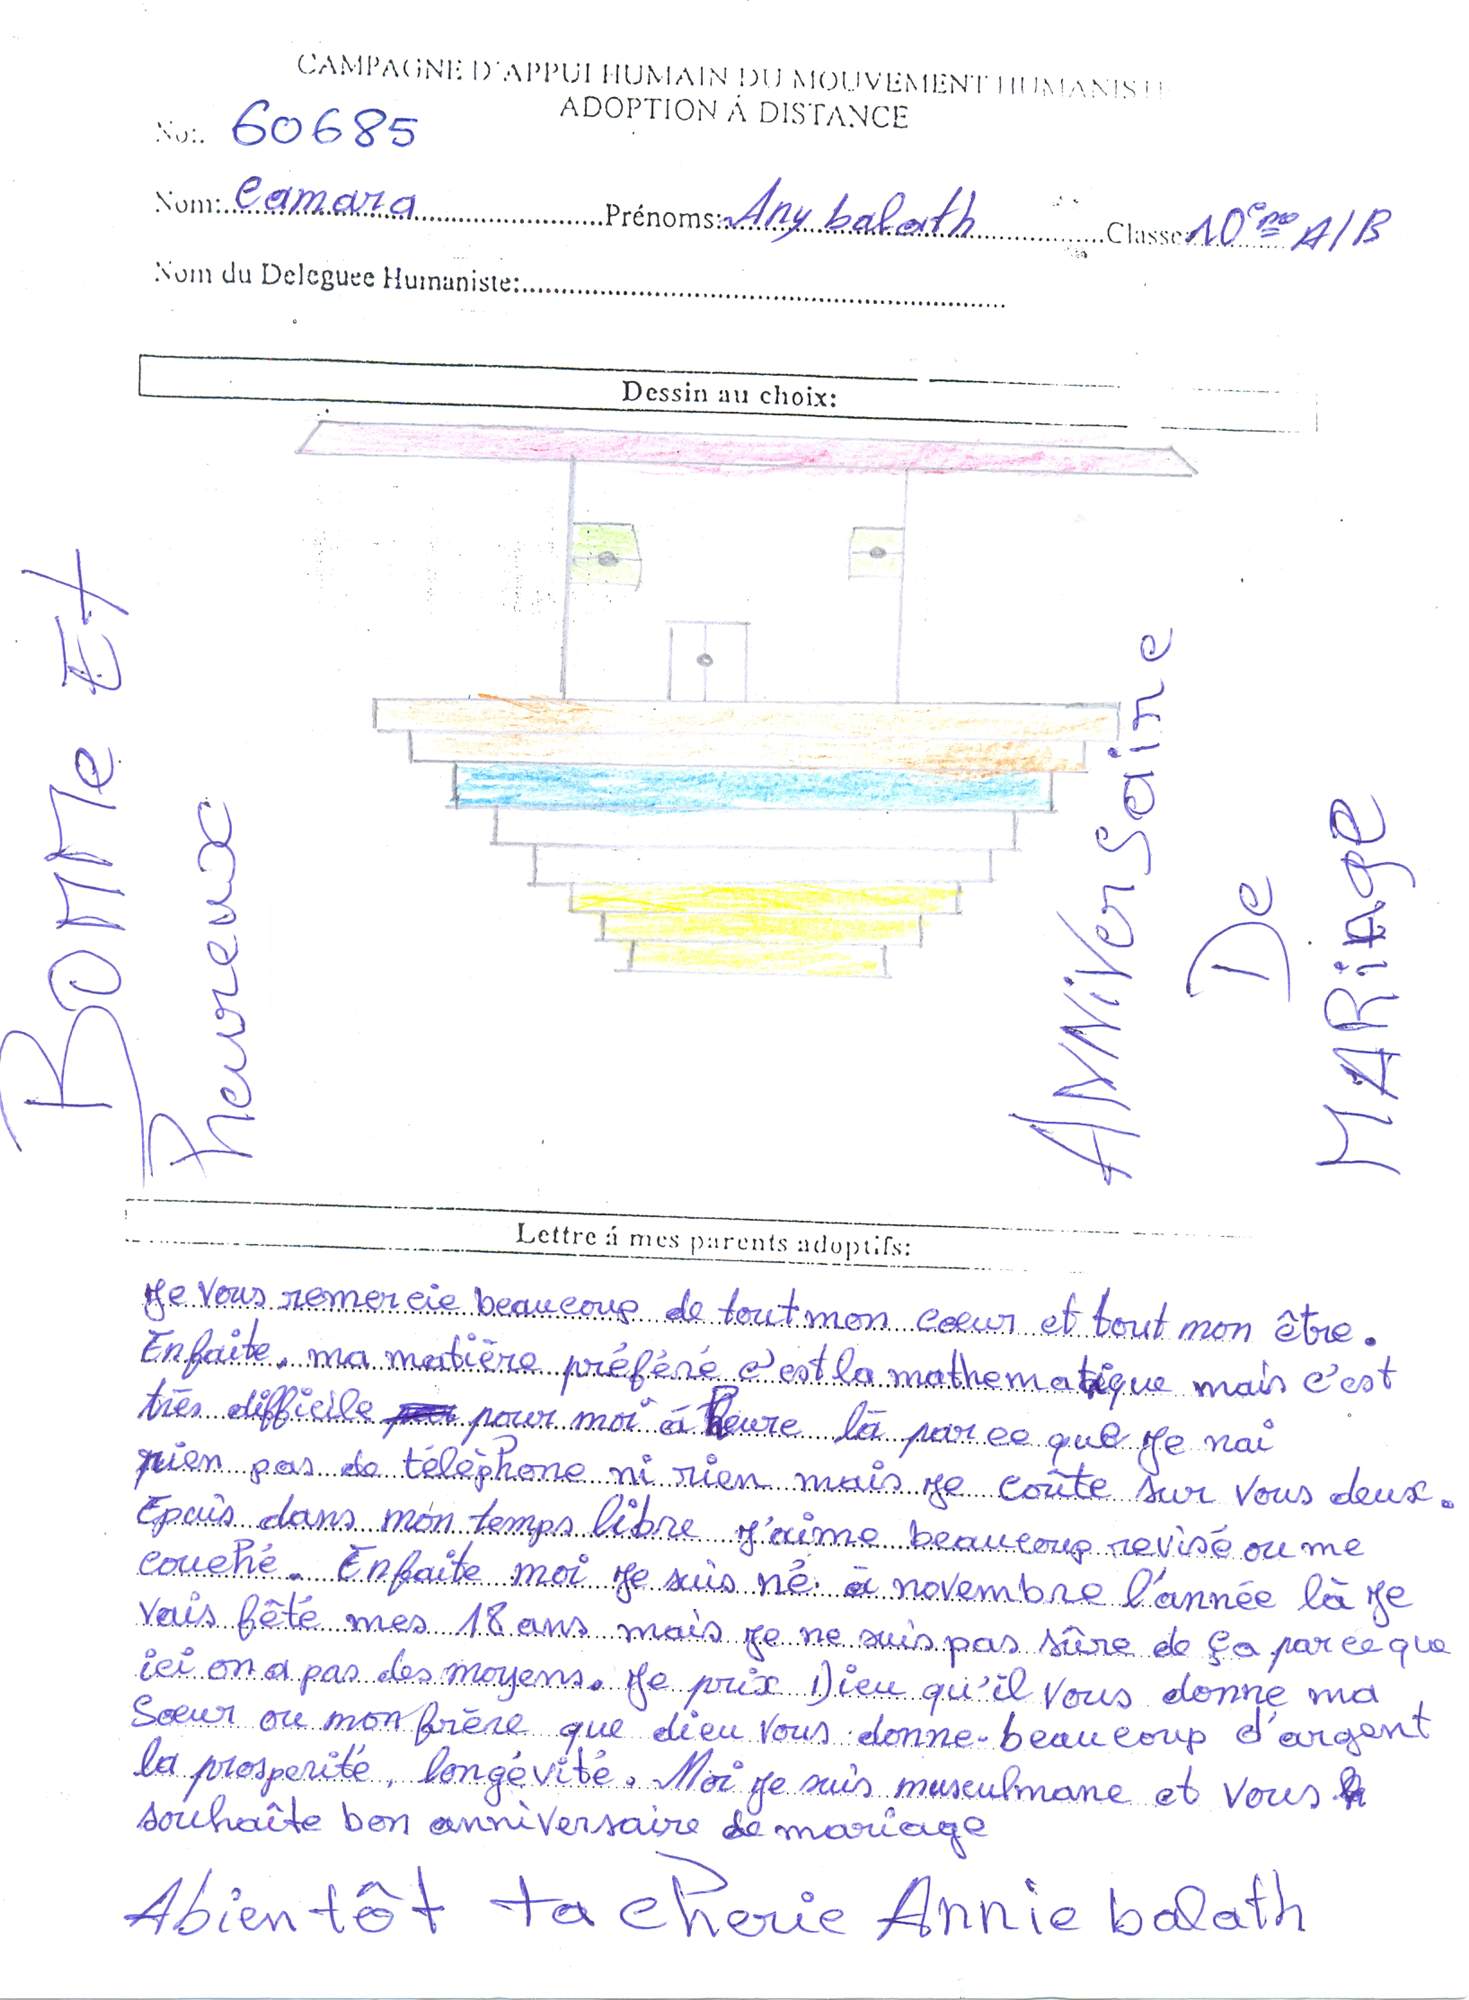 CAMPAGNE D'APPUI HUMAIN DU MOUVEMENT HUMANISTE
ADOPTION Á DISTANCE
No:. 60685
Nom: Camara Prénoms: Any balath Classe: 10ème A/B
Nom du Deleguee Humaniste:
Dessin au choix:
BONNe Et
heureux
ANNiVerSaire
De
MARiAge
Lettre á mes parents adoptifs:
Je vous remercie beaucoup de tout mon cœur et tout mon être.
Enfaite, ma matière préféré c'est la mathematique mais c'est
très difficile pour moi á heure là parce que je nai
rien pas de téléphone ni rien mais je coûte sur vous deux.
Epuis dans mon temps libre j'aime beaucoup revisé ou me
couché. Enfaite moi je suis né à novembre l'année là je
vais fêté mes 18 ans mais je ne suis pas sûre de ça parce que
ici on a pas des moyens. Je prix Dieu qu'il vous donne ma
Sœur ou mon frère que dieu vous donne beaucoup d'argent
la prosperité, longévité. Moi je suis musculmane et vous
souhaîte bon anniversaire de mariage
Abientôt ta cherie Annie balath